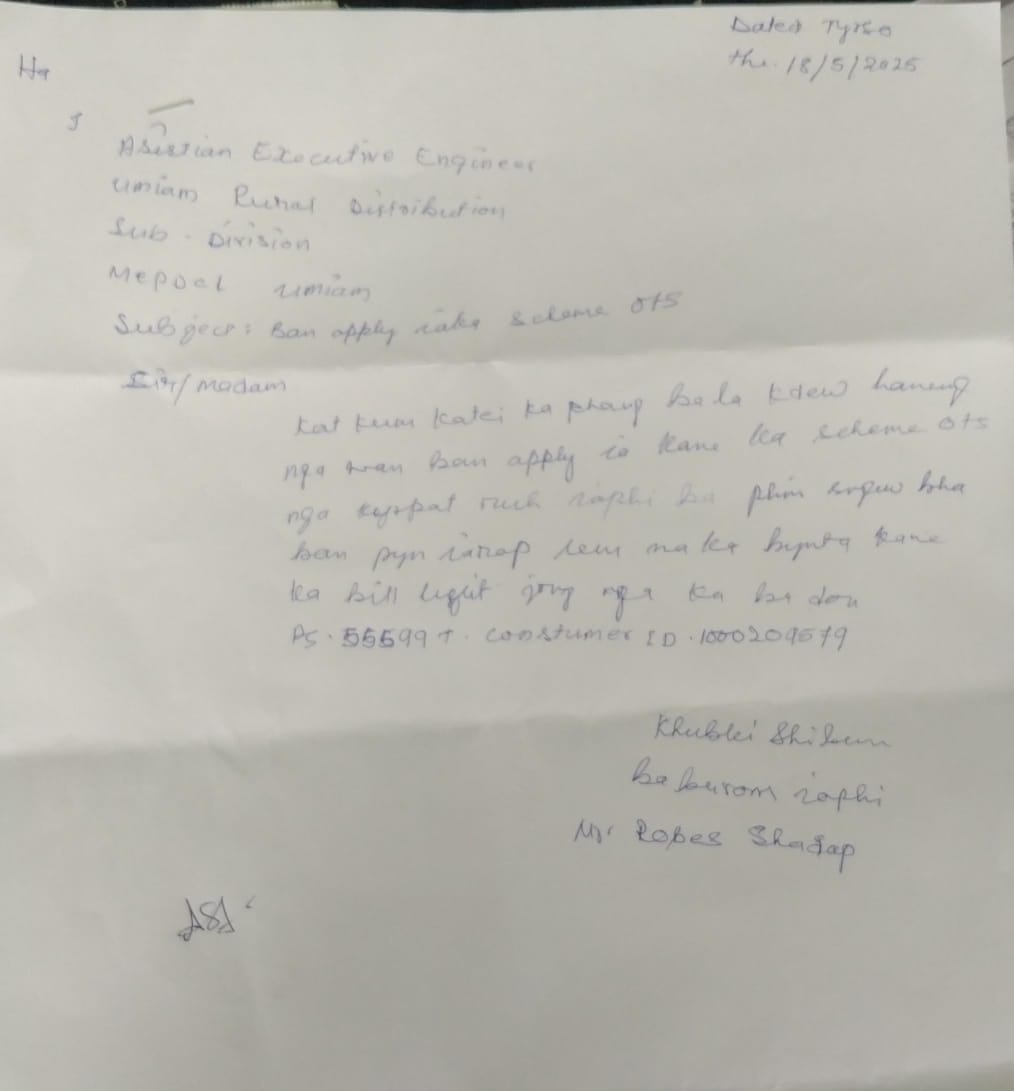 Dated Tyrso
the. 18/5/2025
Ha
I
Asistian Executive Engineer
Umiam Rural Distribution
Sub - Division
Mepdcl umiam
Subject: Ban apply iaka scheme OTS
Sir/madam
Kat kum katei ka phang ba la kdew haneng
nga wan ban apply ia kane ka scheme OTS
nga kyrpat ruh iaphi ba phin sngew bha
ban pyn iarap lem na ka bynta kane
ka bill light jong nga ka ba don
Ps. 55599 t. constumer ID. 1000209579
Khublei Shibun
ba burom iaphi
Mr Robes Shadap